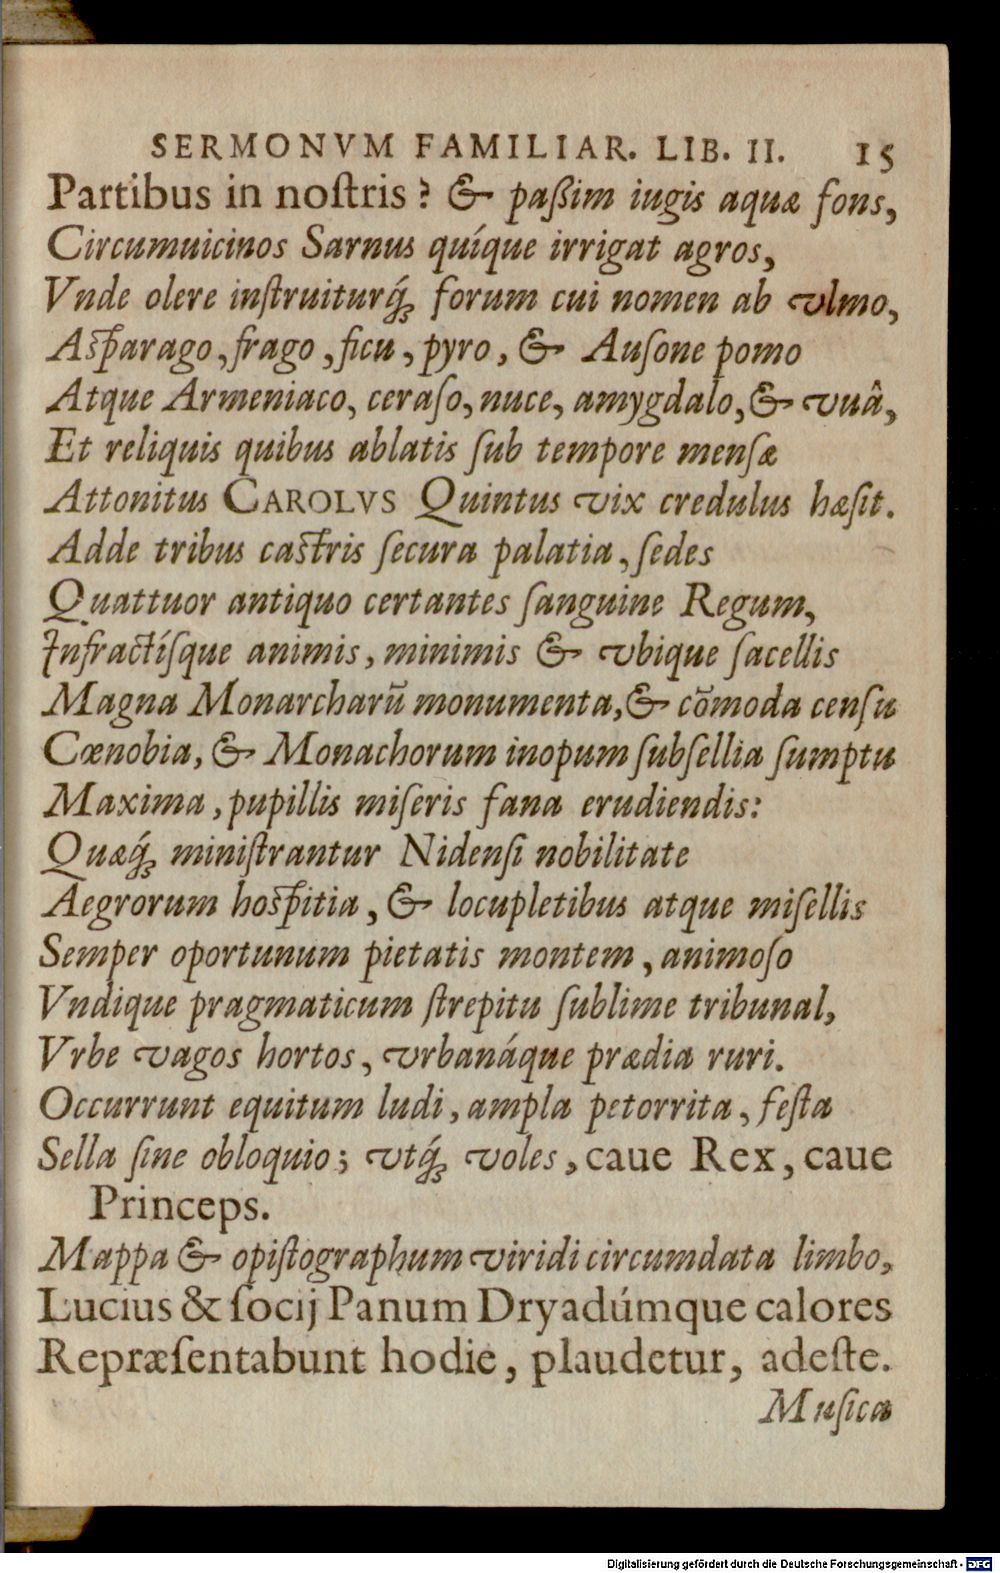 SERMONVM FAMILIAR. LIB. II. 15
Partibus in noſtris? & paßim iugis aquæ fons,
Circumuicinos Sarnus quíque irrigat agros,
Vnde olere inſtruiturq́ꝫ forum cui nomen ab vlmo,
Aſparago, frago, ficu, pyro, & Auſone pomo
Atque Armeniaco, ceraſo, nuce, amygdalo, & vuâ,
Et reliquis quibus ablatis ſub tempore menſæ
Attonitus CAROLVS Quintus vix credulus hæſit.
Adde tribus caſtris ſecura palatia, ſedes
Quattuor antiquo certantes ſanguine Regum,
Infractíſque animis, minimis & vbique ſacellis
Magna Monarcharũ monumenta, & cõmoda cenſu
Cœnobia, & Monachorum inopum ſubſellia ſumptu
Maxima, pupillis miſeris fana erudiendis:
Quæq́ꝫ miniſtrantur Nidenſi nobilitate
Aegrorum hoſpitia, & locupletibus atque miſellis
Semper oportunum pietatis montem, animoſo
Vndique pragmaticum ſtrepitu ſublime tribunal,
Vrbe vagos hortos, vrbanáque prædia ruri.
Occurrunt equitum ludi, ampla petorrita, feſta
Sella ſine obloquio; vtq́ꝫ voles, caue Rex, caue
Princeps.
Mappa & opiſtographum viridi circumdata limbo,
Lucius & ſocij Panum Dryadúmque calores
Repræſentabunt hodie, plaudetur, adeſte.
Muſica
Digitalisierung gefördert durch die Deutsche Forschungsgemeinschaft - DFG